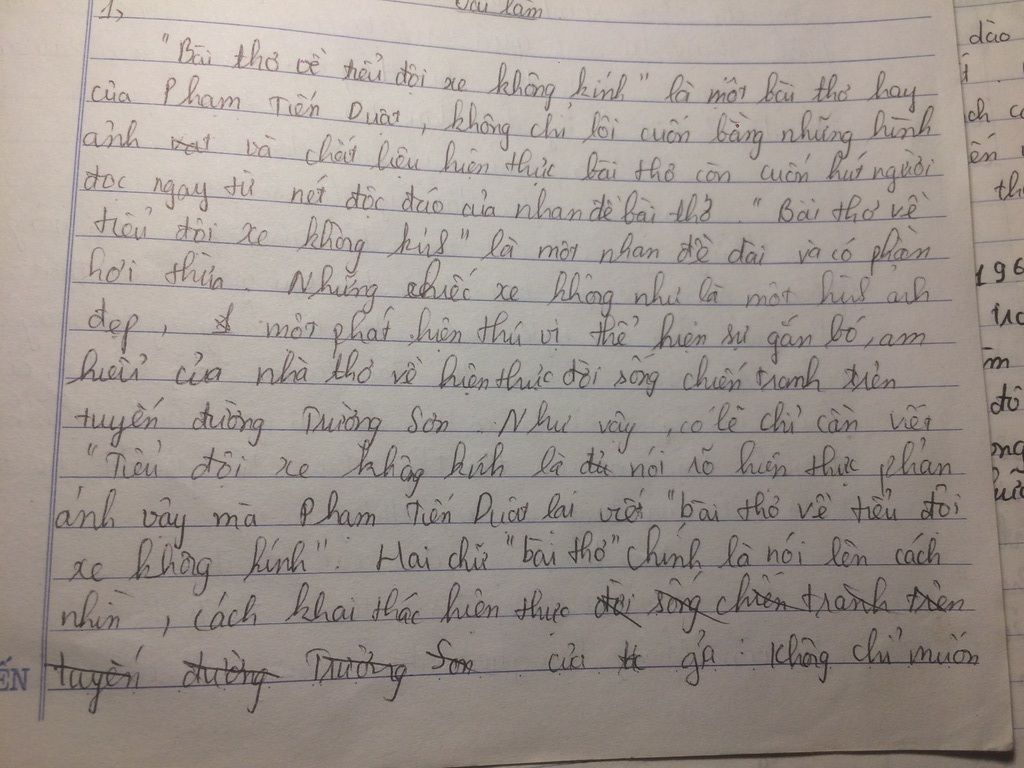 Bài làm
1,
"Bài thơ về tiểu đội xe không kính" là một bài thơ hay
của Phạm Tiến Duật, không chỉ lôi cuốn bằng những hình
ảnh và chất liệu hiện thực bài thơ còn cuốn hút người
đọc ngay từ nét độc đáo của nhan đề bài thơ. "Bài thơ về
tiểu đội xe không kís" là một nhan đề dài và có phần
hơi thừa. Những chiếc xe không như là một hìs ảh
đẹp, một phát hiện thú vị thể hiện sự gắn bó, am
hiểu của nhà thơ về hiện thực đời sống chiến tranh trên
tuyến đường Trường Sơn. Như vậy, có lẽ chỉ cần viết
"Tiểu đội xe không kính là đủ nói rõ hiện thực phản
ánh vậy mà Phạm Tiến Duật lại viết "bài thơ về tiểu đội
xe không kính". Hai chữ "bài thơ" chính là nói lên cách
nhìn, cách khai thác hiện thực đời sống chiến tranh trên
tuyến đường Trường Sơn của gả : Không chỉ muốn
ẾN
đào
ch
ến
th
196
đô